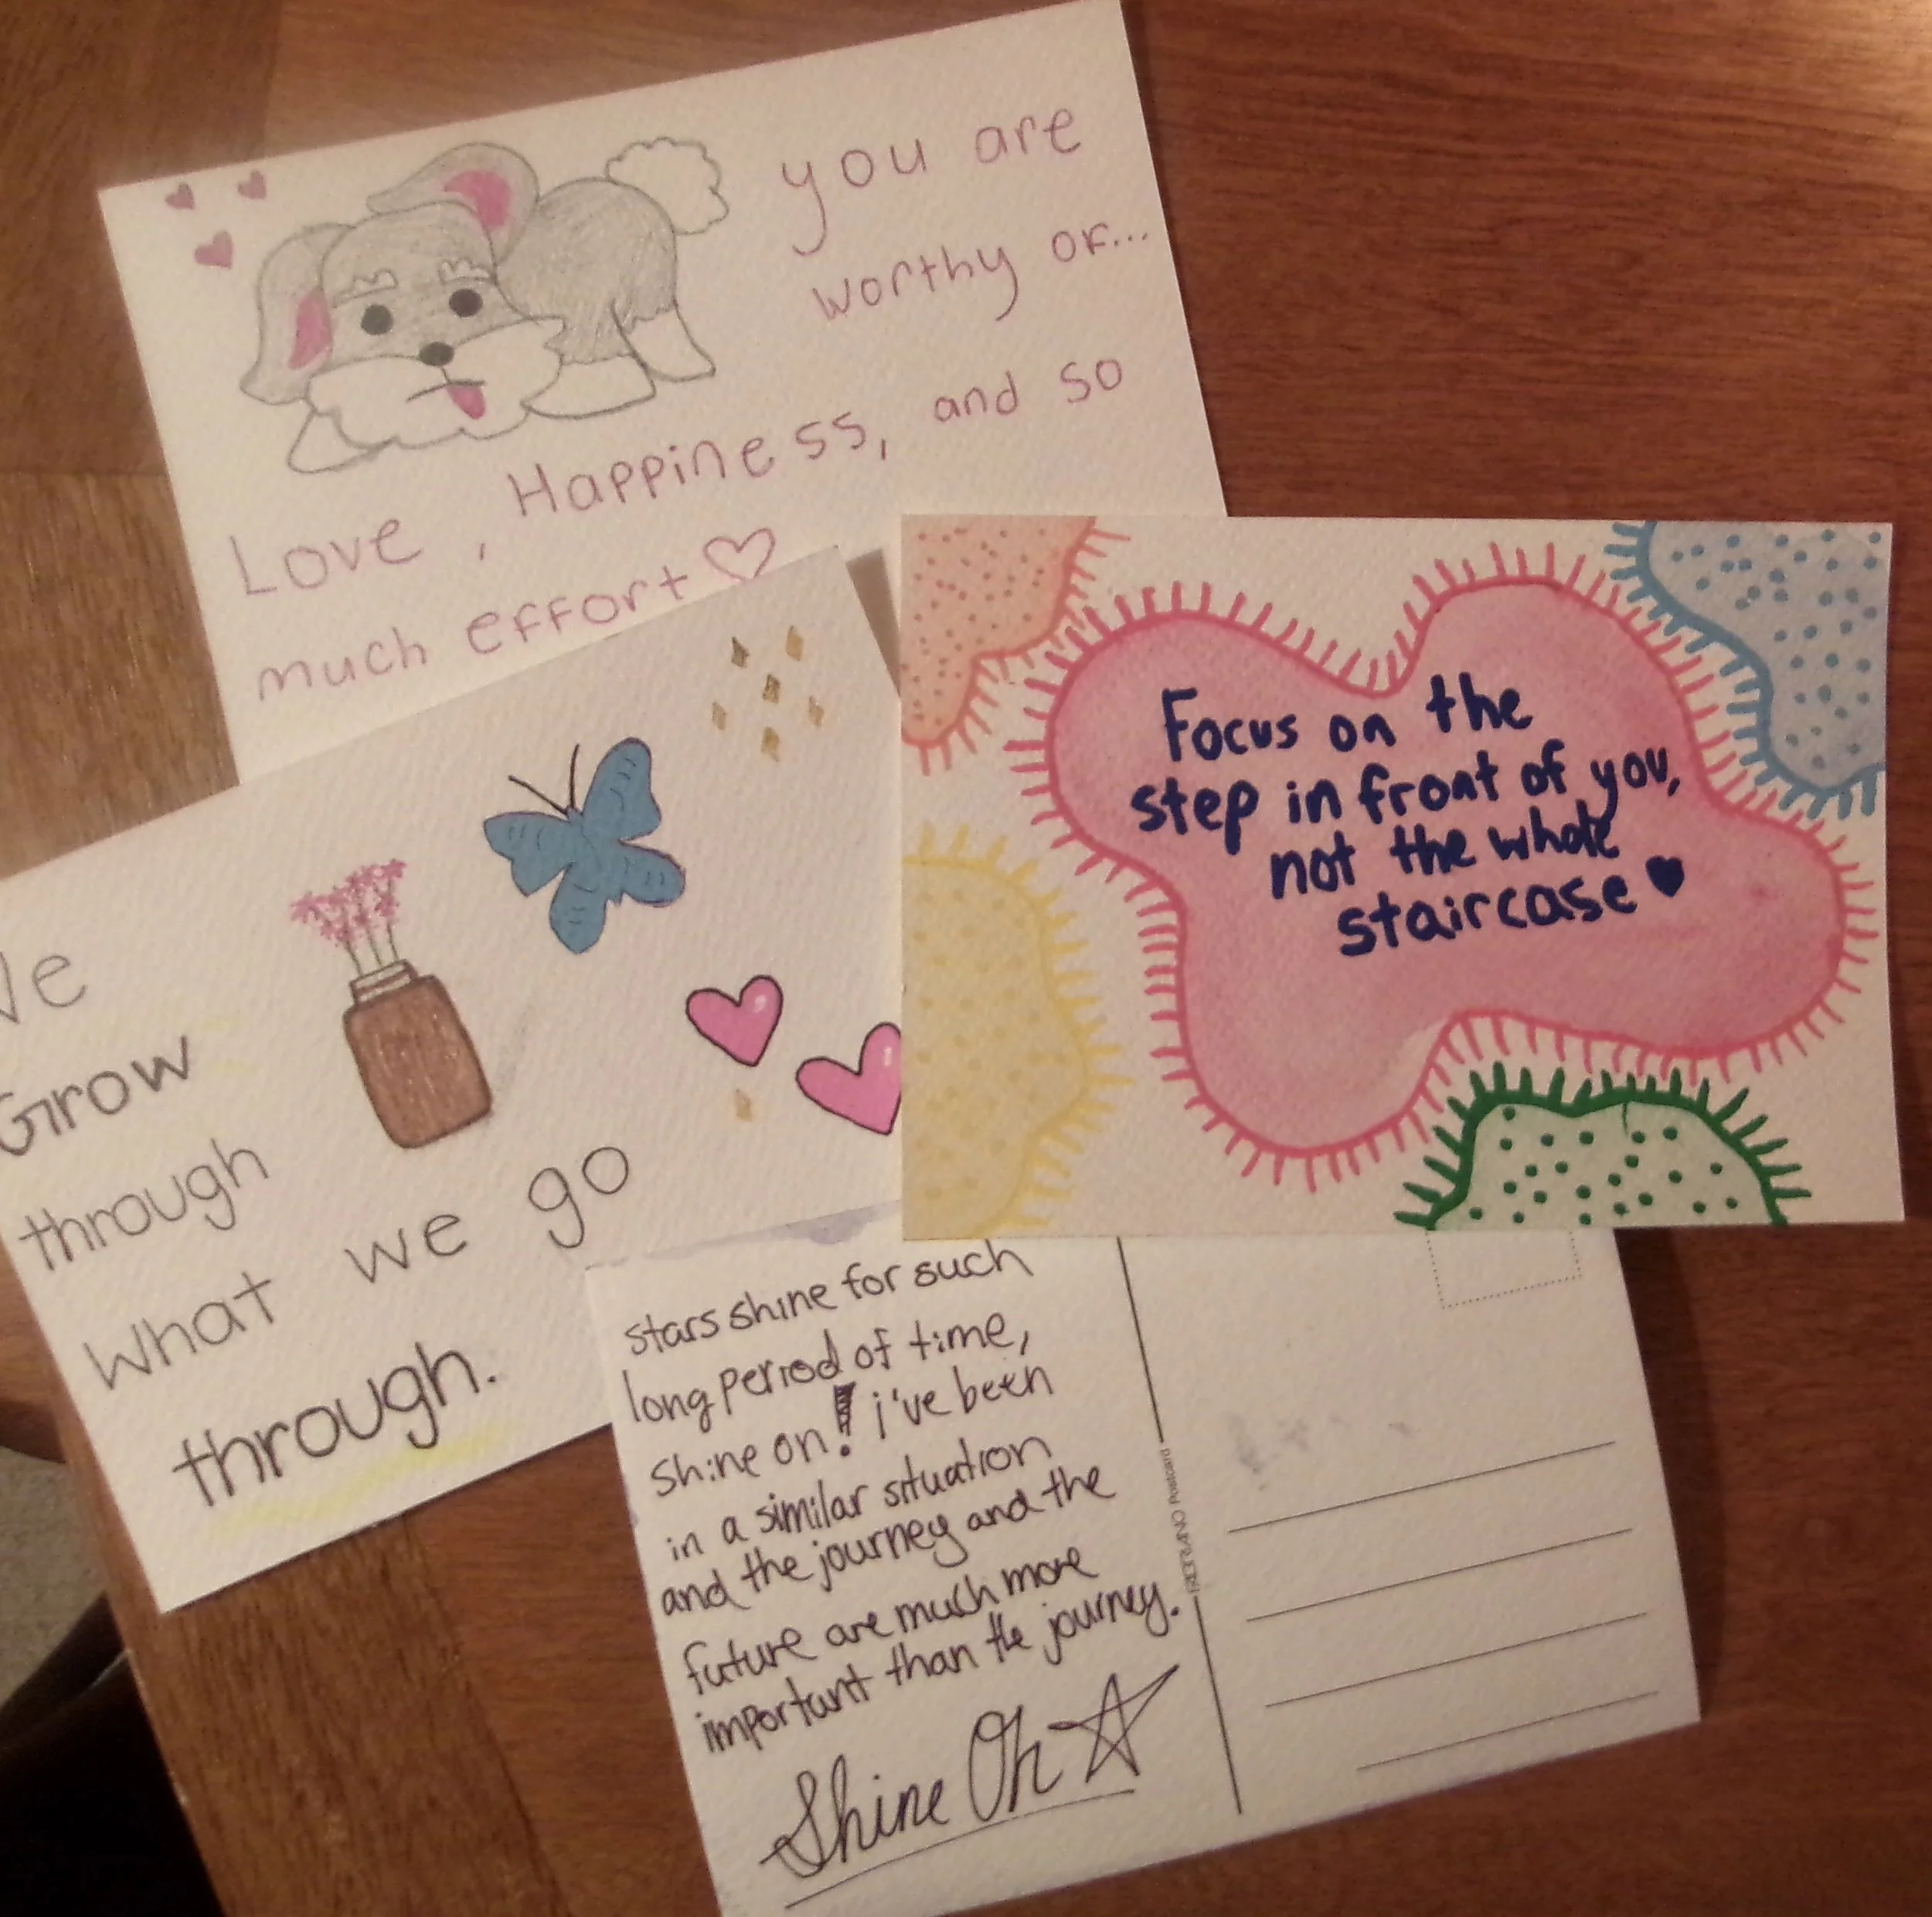 you are
worthy of...
Love, Happiness, and so
much effort ♡
Focus on the
step in front of you,
not the whole
staircase ♥
We
Grow
through
what we go
through.
stars shine for such
long period of time,
shine on! i've been
in a similar situation
and the journey and the
future are much more
important than the journey.
Shine Oh ☆
FABRIANO Postcard